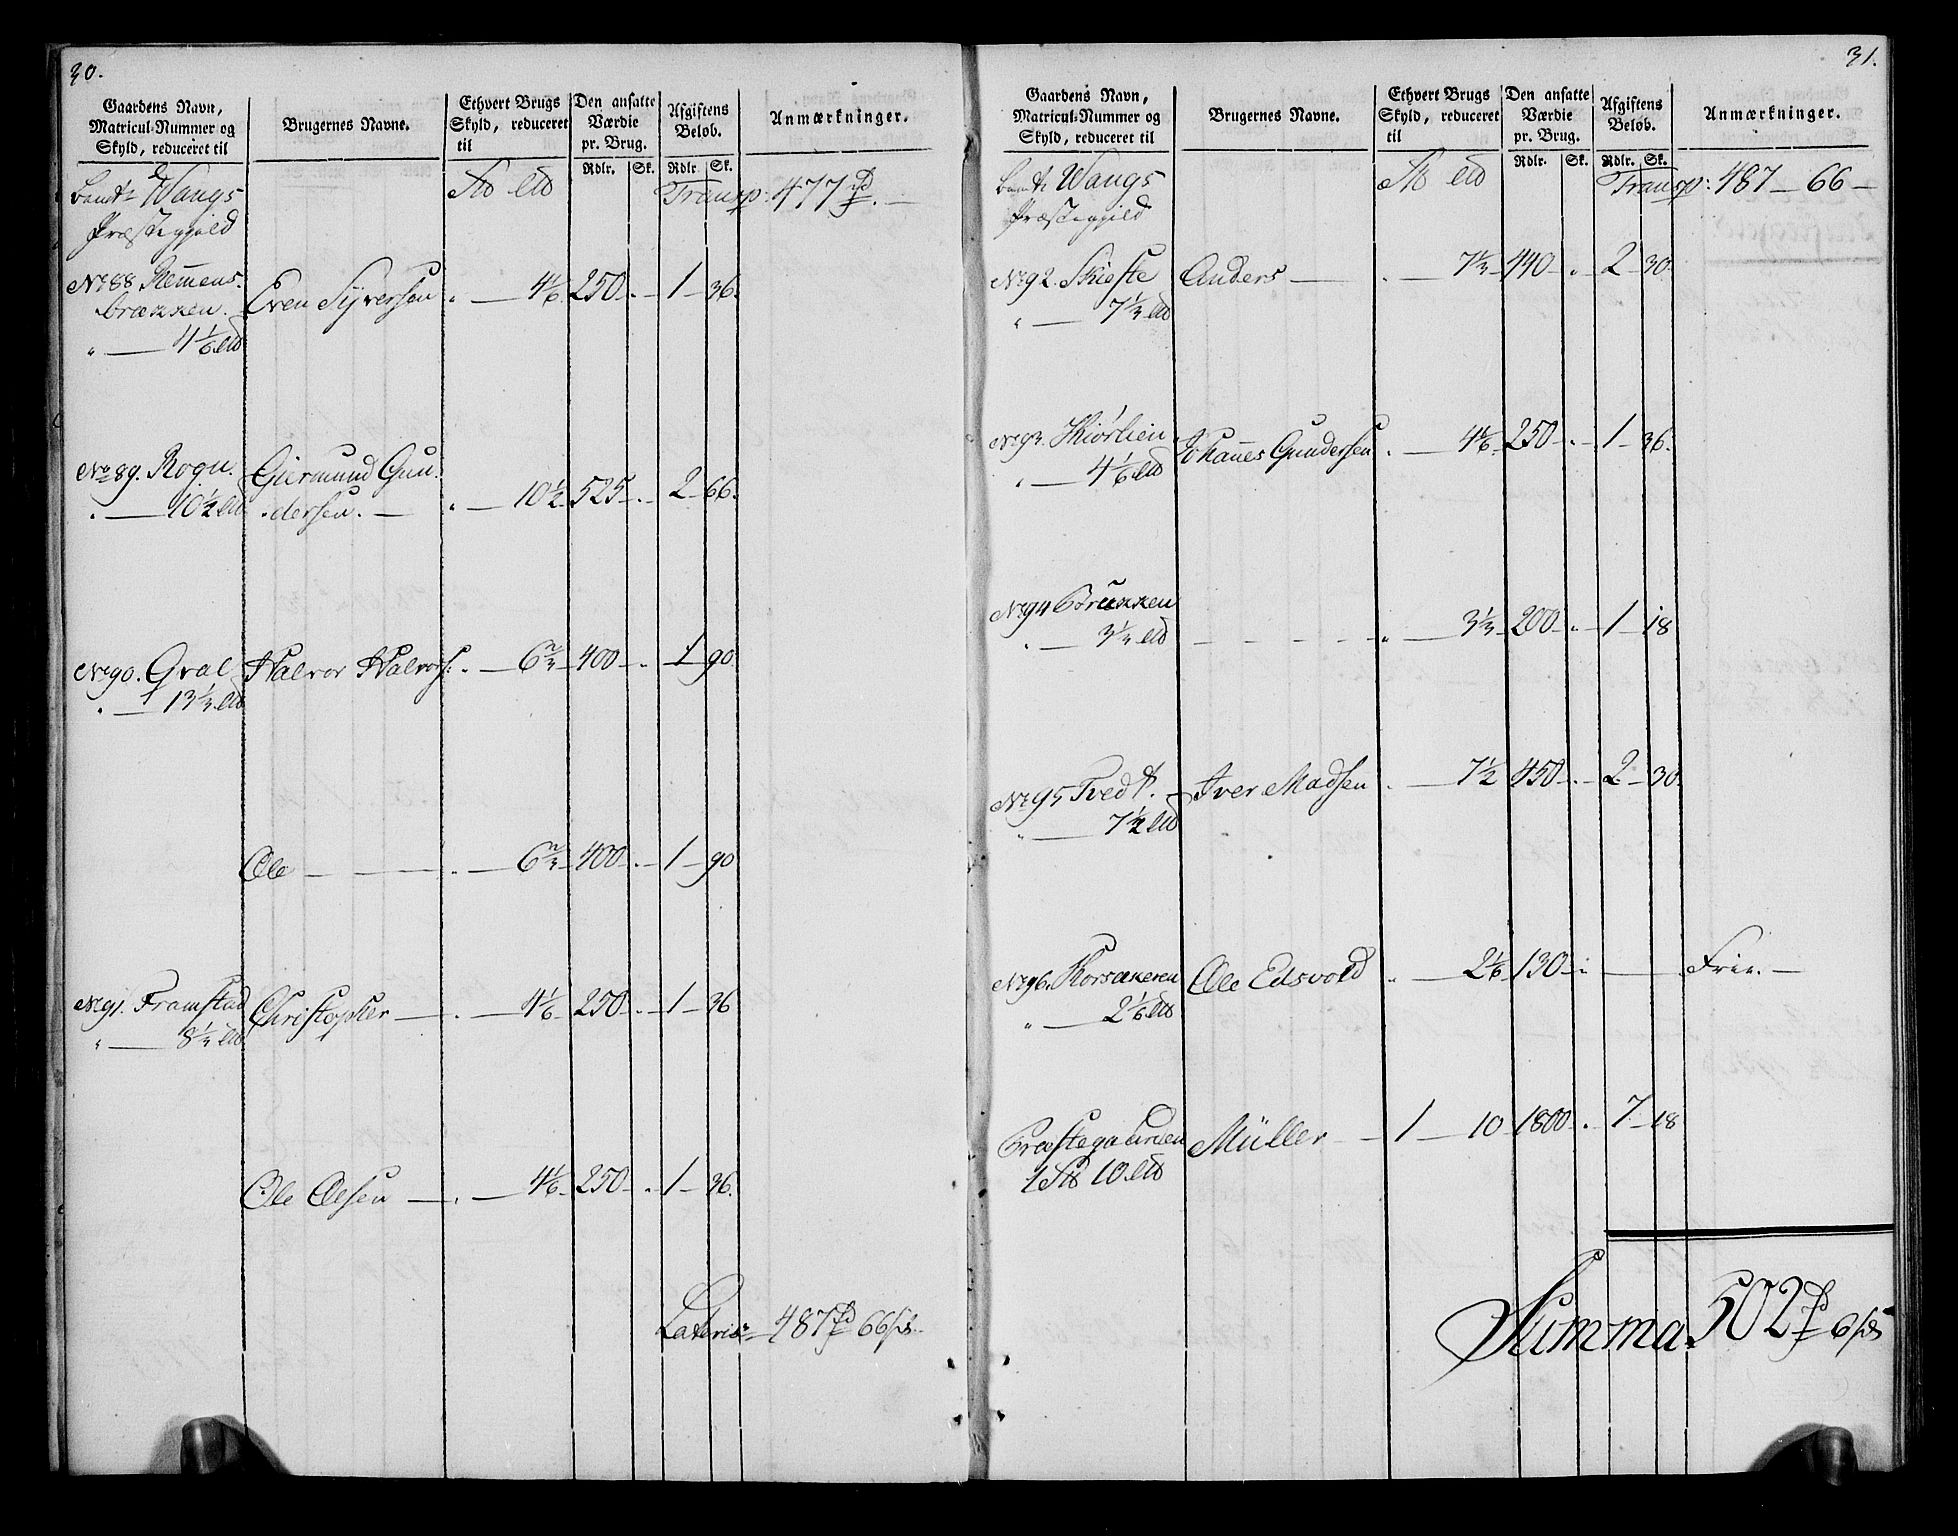 30.
Gaardens Navn,
Matricul-Nummer og
Skyld, reduceret til
Brugernes Navne.
Ethvert Brugs
Skyld, reduceret
til
Den ansatte
Værdie
pr. Brug.
Rdlr. Sk.
Afgiftens
Beløb.
Rdlr. Sk.
Anmærkninger.
Wangs
Præstegield
Transp: 477
No 88 Remmens-
brækken. Even Syversen " 4 1/6 250 1 36.
" 4 1/6
No 89. Rogn. Giermund Gun-
10 1/2 dersen. " 10 1/2 525 2 66.
No 90. Qval Halvor Halvors: 6 2/3 400 1 90
13 1/3
Ole 6 2/3 400 1 90
No 91. Framstad Christopher 4 1/6 250 1 36
" 8 1/3
Ole Olsen 4 1/6 250 1 36.
Lateris 487 66
31.
Gaardens Navn,
Matricul-Nummer og
Skyld, reduceret til
Brugernes Navne.
Ethvert Brugs
Skyld, reduceret
til
Den ansatte
Værdie
pr. Brug.
Rdlr. Sk.
Afgiftens
Beløb.
Rdlr. Sk.
Anmærkninger.
Wangs
Præstegield
Transp: 487 66
No 92. Skiefte Anders 7 1/3 440 2 30
" 7 1/3
No 93. Kiørlien Johannes Gundersen 4 1/6 250 1 36.
" 4 1/6
No 94 Brækken 3 1/3 200 1 18
3 1/3
No 95 Tvedt. Iver Madsen 7 1/2 450 2 30
" 7 1/2
No 96. Korsækeren Ole Edsvold 2 1/6 130 Frie.
" 2 1/6
Præstegaarden Müller 1 10 1800 7 18
1 10
Summa 502 6